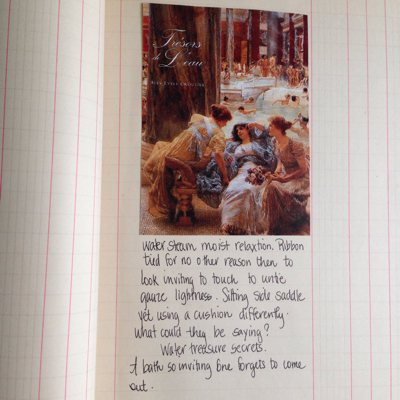 Trésors
de L'eau
water steam moist relaxtion. Ribbon
tied for no other reason then to
look inviting to touch to untie
gauze lightness. Sitting side saddle
yet using a cushion differently.
what could they be saying?
Water treasure secrets.
A bath so inviting one forgets to come
out.